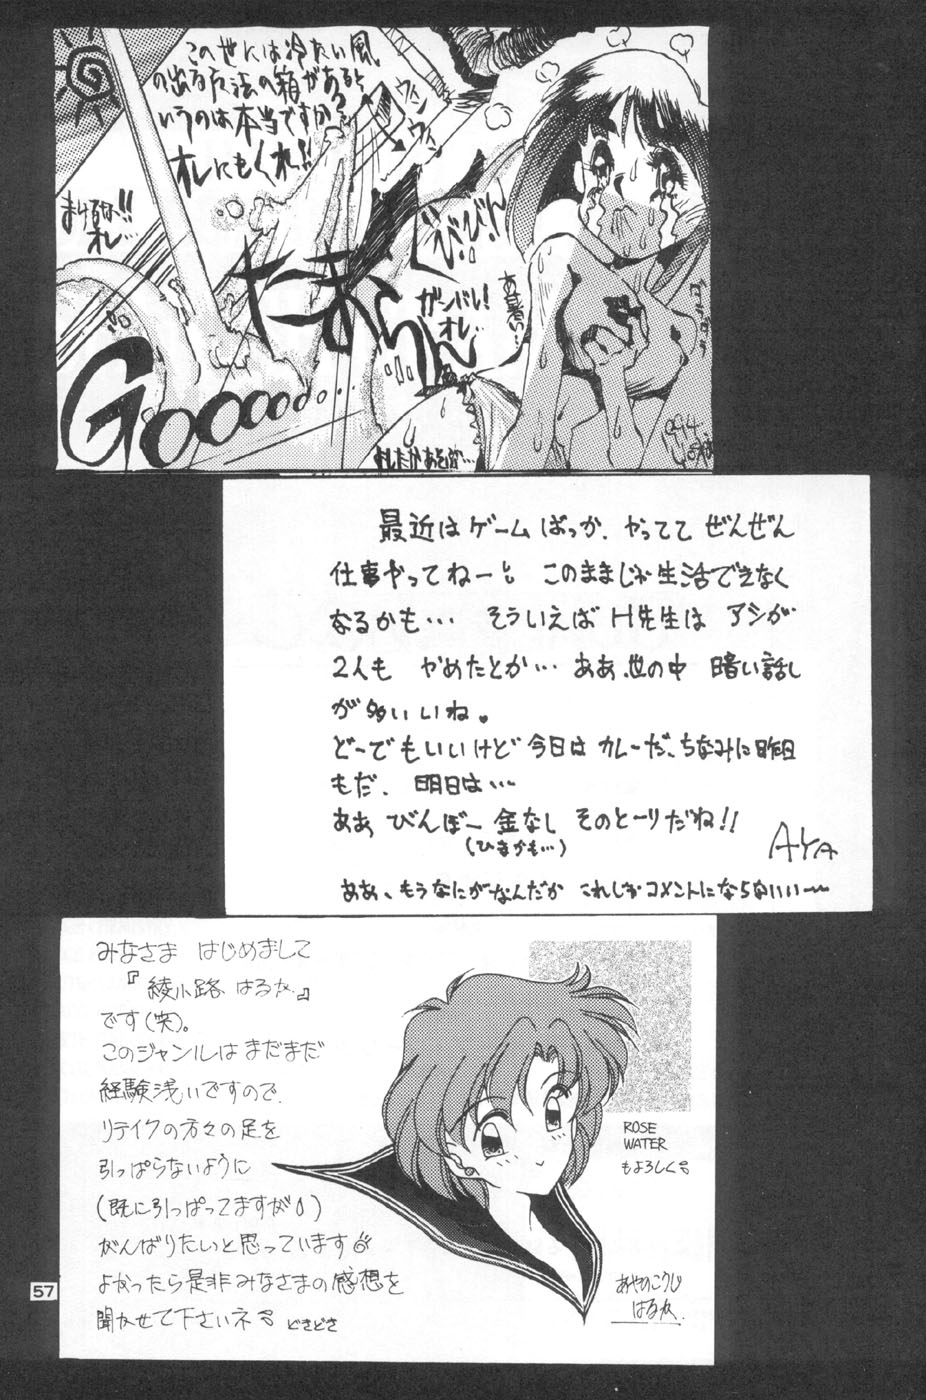 この世には冷たい風
の出る方法の箱があると
いうのは本当ですか?
オレにもくれ!!
ウィン
ウィン
まけるな!!
オレ…
びんびん
たまらん
ガンバレ!
オレ…
あ暑い…
Gooooo...
最近はゲームばっか、やってて ぜんぜん
仕事やってねーし このままじゃ生活できなく
なるかも… そういえば H先生は アシが
2人も やめたとか… ああ、世の中 暗い話し
が多いいね。
どーでもいいけど今日は カレーだ、ちなみに昨日
もだ、 明日は…
ああ びんぼー 金なし そのとーりだね!!
(ひまかも…)
AYA
ああ、もうなにがなんだか これじゃコメントにならないいー
みなさま はじめまして
『綾小路 はるか』
です(笑)。
このジャンルは まだまだ
経験浅いですので、
リテイクの方々の足を
引っぱらないように
(既に引っぱってますが)
がんばりたいと思っています
よかったら是非みなさまの感想を
聞かせて下さいネ どきどき
ROSE
WATER
もよろしく
あやのこうじ
はるか
57